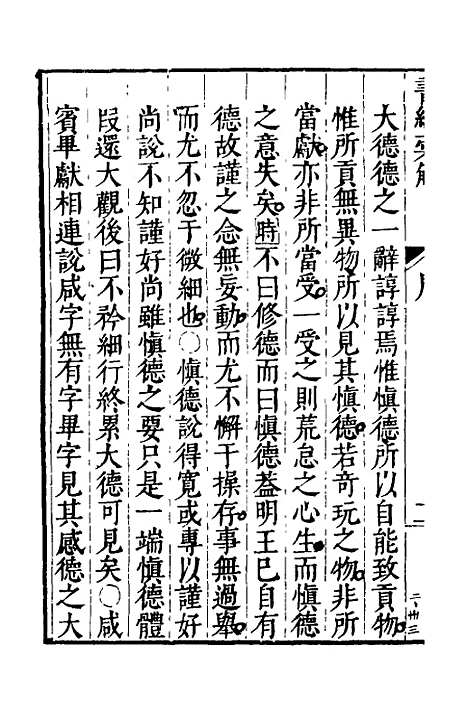 大德德之一辭諄諄焉惟慎德所以自能致貢物
惟所貢無異物所以見其慎德若奇玩之物非所
當獻亦非所當受一受之則荒怠之心生而慎德
之意失矣時不曰修德而曰慎德蓋明王已自有
德故謹之念無妄動而尤不懈于操存事無過舉
而尤不忍于微細也○慎德說得寬或專以謹好
尚說不知謹好尚雖慎德之要只是一端慎德體
段還大觀後曰不矜細行終累大德可見矣○咸
賓畢獻相連說咸字無有字畢字見其感德之大